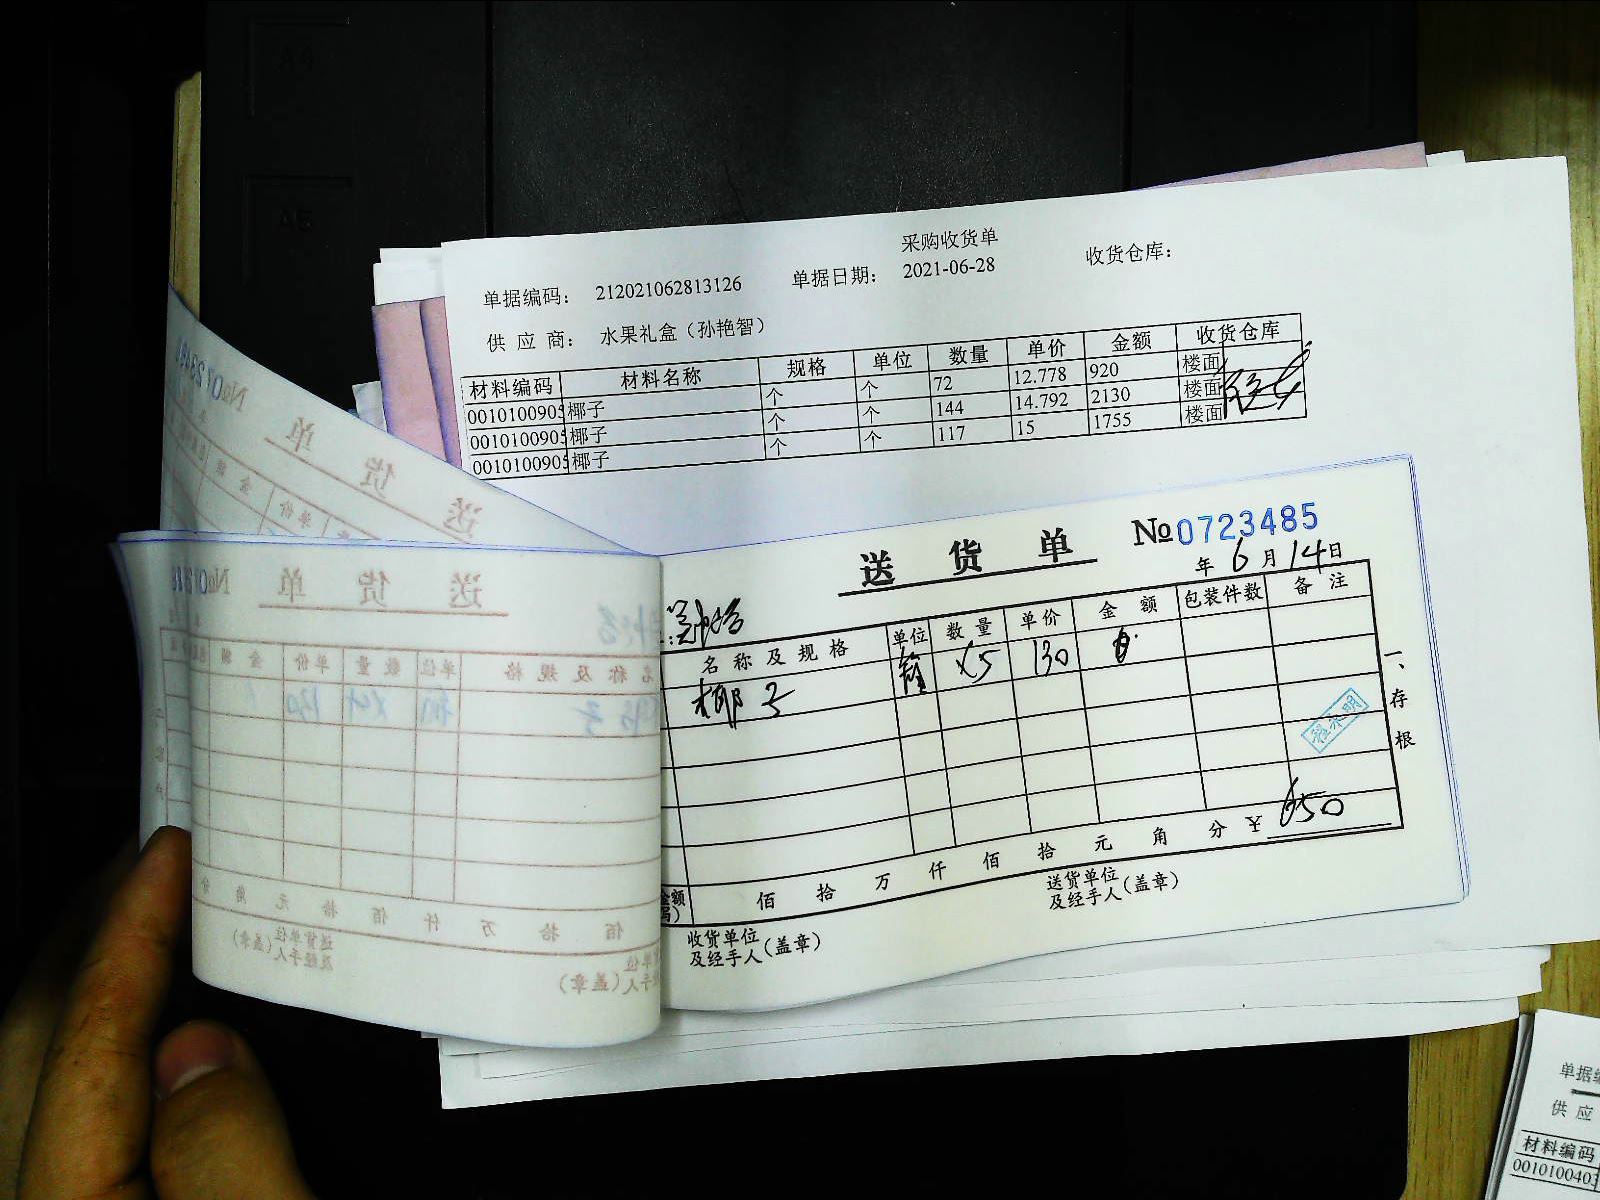 采购收货单
单据编码： 212021062813126 单据日期： 2021-06-28 收货仓库：
供 应 商： 水果礼盒（孙艳智）
材料编码 材料名称 规格 单位 数量 单价 金额 收货仓库
0010100905 椰子 个 个 72 12.778 920 楼面
0010100905 椰子 个 个 144 14.792 2130 楼面
0010100905 椰子 个 个 117 15 1755 楼面
送 货 单 №0723485
年 6 月 14 日
名 称 及 规 格 单位 数 量 单 价 金 额 包装件数 备 注
椰子 x5 130
一、存根
程永明
佰 拾 万 仟 佰 拾 元 角 分 ¥ 650
收货单位
及经手人(盖章)
送货单位
及经手人(盖章)
供 应
材料编码